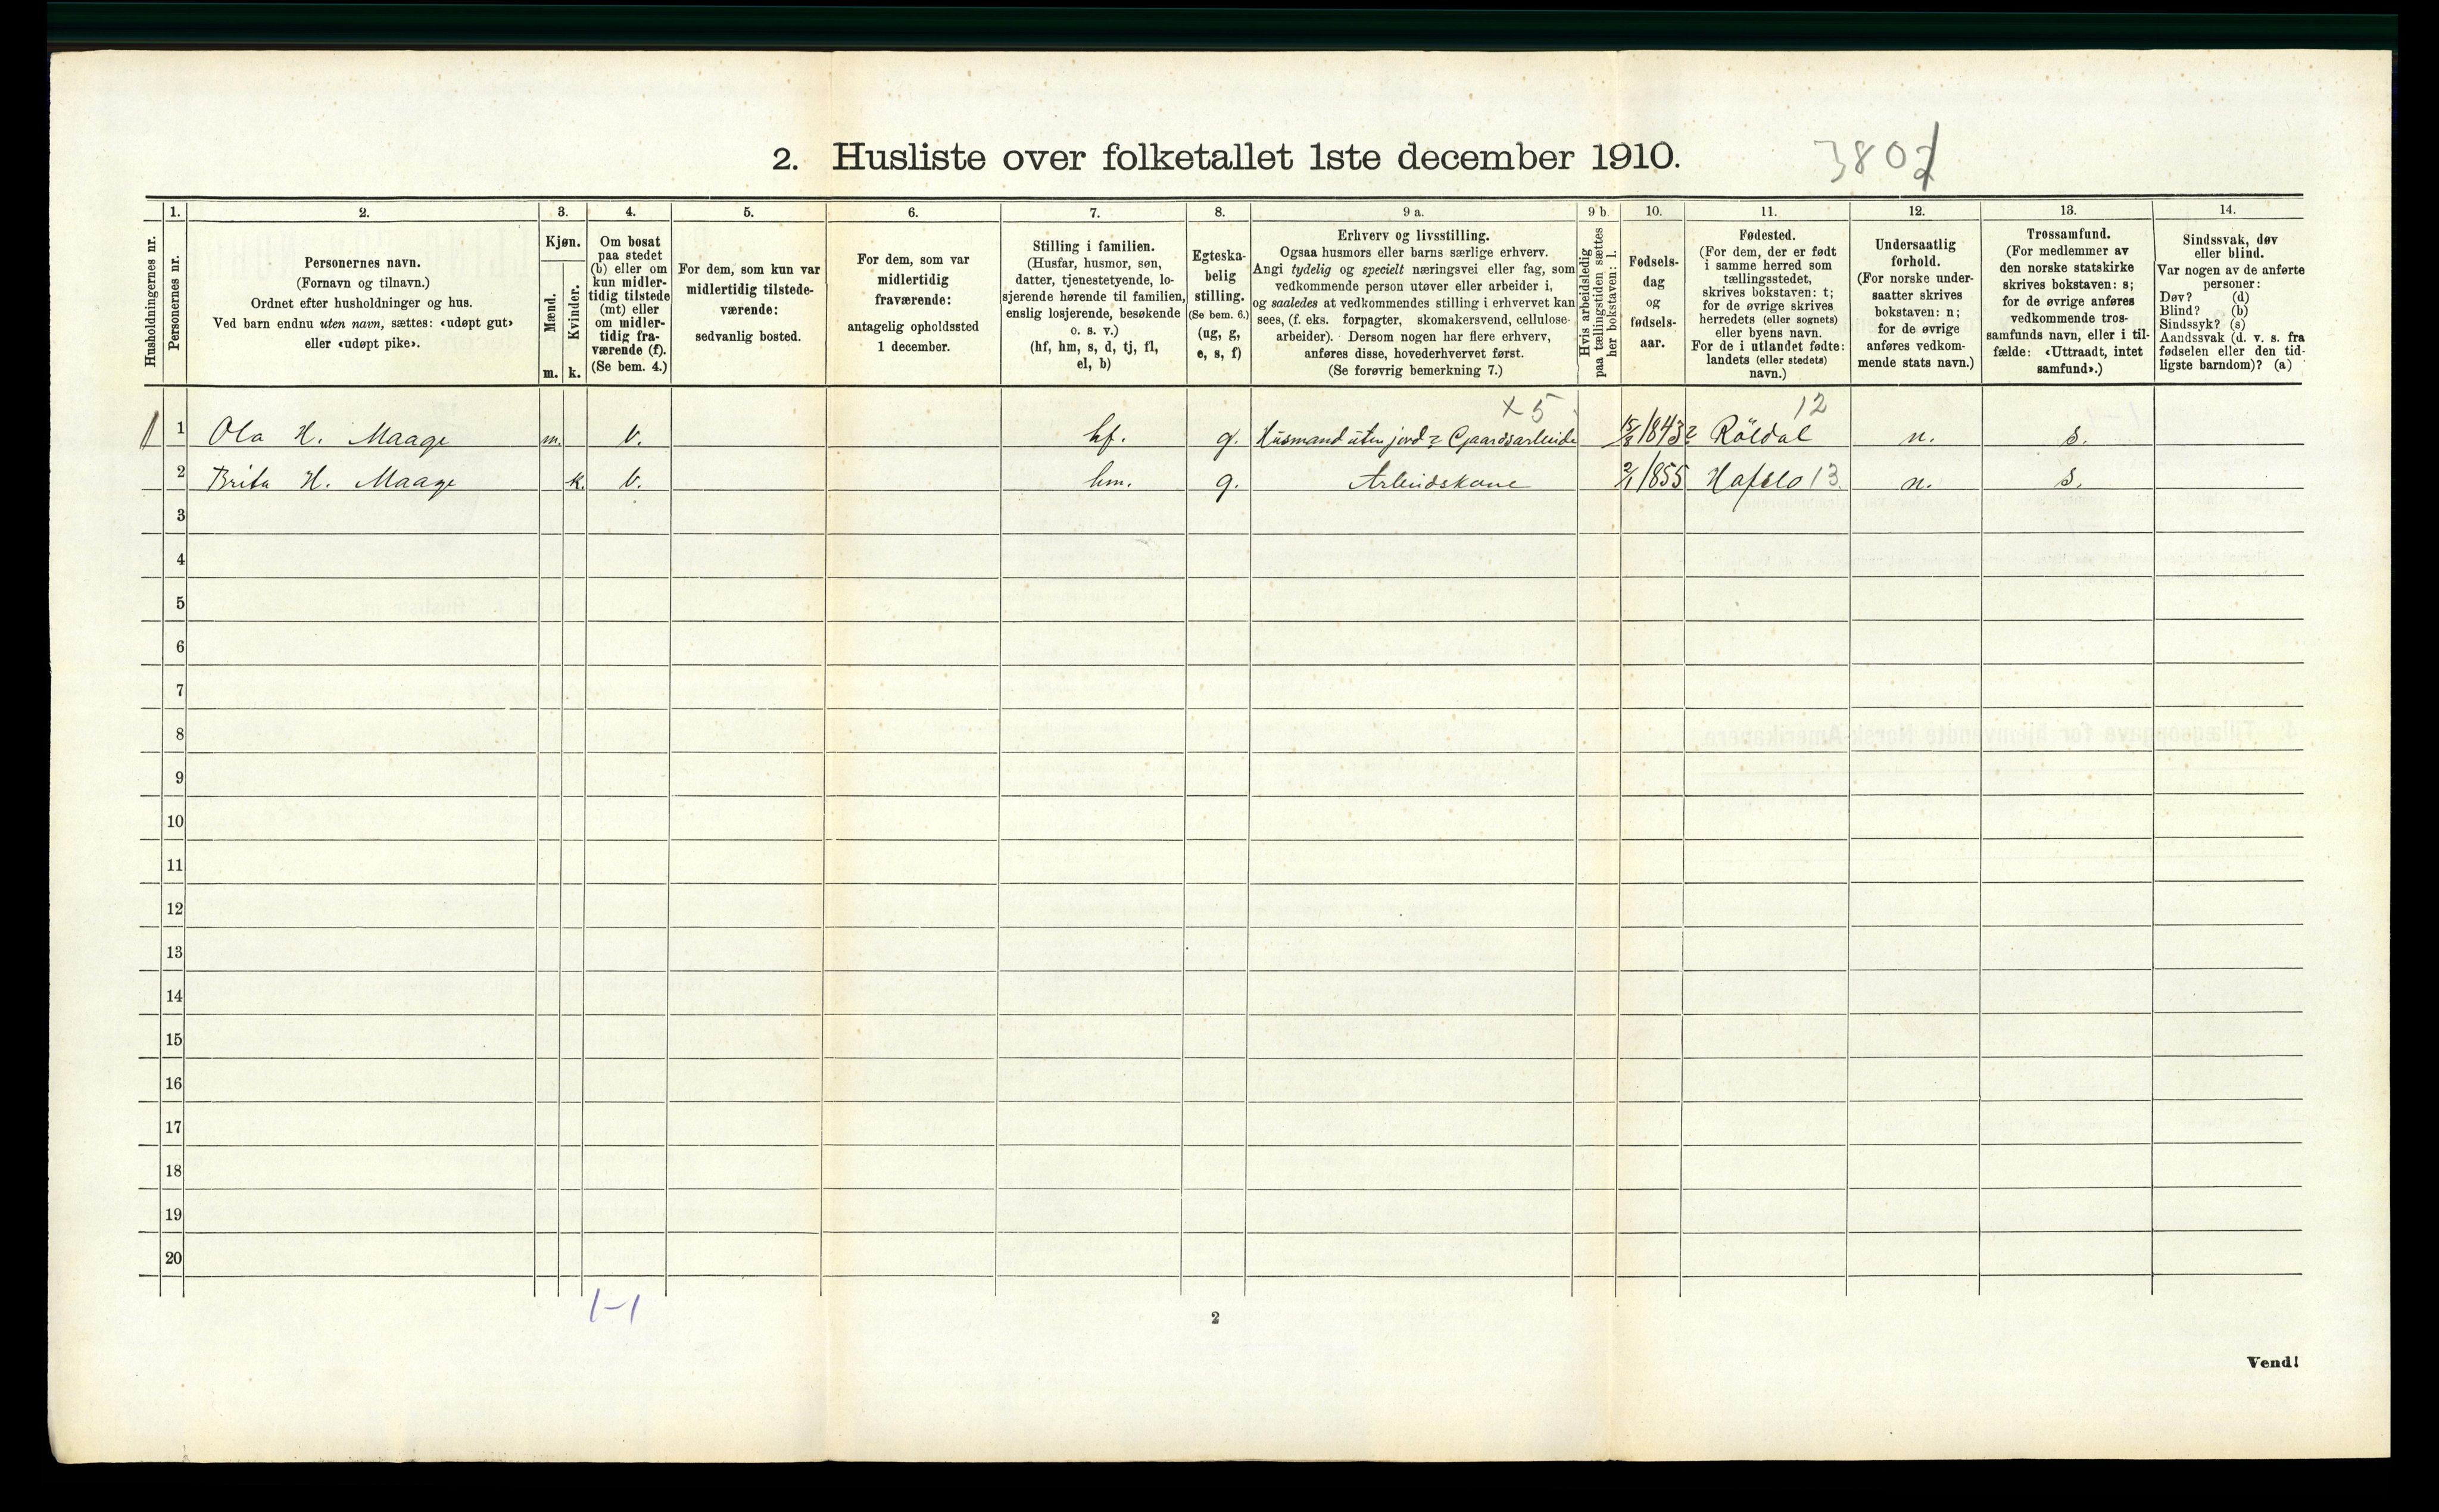 2. Husliste over folketallet 1ste december 1910.
3802
Husholdningernes nr.
1.
Personernes nr.
2.
Personernes navn.
(Fornavn og tilnavn.)
Ordnet efter husholdninger og hus.
Ved barn endnu uten navn, sættes: «udøpt gut»
eller «udøpt pike».
3.
Kjøn.
Mænd.
Kvinder.
m.
k.
4.
Om bosat
paa stedet
(b) eller om
kun midler-
tidig tilstede
(mt) eller
om midler-
tidig fra-
værende (f).
(Se bem. 4.)
5.
For dem, som kun var
midlertidig tilstede-
værende:
sedvanlig bosted.
6.
For dem, som var
midlertidig
fraværende:
antagelig opholdssted
1 december.
7.
Stilling i familien.
(Husfar, husmor, søn,
datter, tjenestetyende, lo-
sjerende hørende til familien,
enslig losjerende, besøkende
o. s. v.)
(hf, hm, s, d, tj, fl,
el, b)
8.
Egteska-
belig
stilling.
(Se bem. 6.)
(ug, g,
e, s, f)
9 a.
Erhverv og livsstilling.
Ogsaa husmors eller barns særlige erhverv.
Angi tydelig og specielt næringsvei eller fag, som
vedkommende person utøver eller arbeider i,
og saaledes at vedkommendes stilling i erhvervet kan
sees, (f. eks. forpagter, skomakersvend, cellulose-
arbeider). Dersom nogen har flere erhverv,
anføres disse, hovederhvervet først.
(Se forøvrig bemerkning 7.)
9 b.
Hvis arbeidsledig
paa tællingstiden sættes
her bokstaven: l.
10.
Fødsels-
dag
og
fødsels-
aar.
11.
Fødested.
(For dem, der er født
i samme herred som
tællingsstedet,
skrives bokstaven: t;
for de øvrige skrives
herredets (eller sognets)
eller byens navn.
For de i utlandet fødte:
landets (eller stedets)
navn.)
12.
Undersaatlig
forhold.
(For norske under-
saatter skrives
bokstaven: n;
for de øvrige
anføres vedkom-
mende stats navn.)
13.
Trossamfund.
(For medlemmer av
den norske statskirke
skrives bokstaven: s;
for de øvrige anføres
vedkommende tros-
samfunds navn, eller i til-
fælde: «Uttraadt, intet
samfund».)
14.
Sindssvak, døv
eller blind.
Var nogen av de anførte
personer:
Døv? (d)
Blind? (b)
Sindssyk? (s)
Aandssvak (d. v. s. fra
fødselen eller den tid-
ligste barndom)? (a)
x 5 12
1 1 Ola H. Maage m. b. hf. g. Husmand uten jord & Gaardsarbeide 15/8 1843 Röldal n. s.
2 Brita H. Maage k. b. hm. g. Arbeidskone 2/1 1855 Hafslo 13 n. s.
3
4
5
6
7
8
9
10
11
12
13
14
15
16
17
18
19
20
1-1
2
Vend!